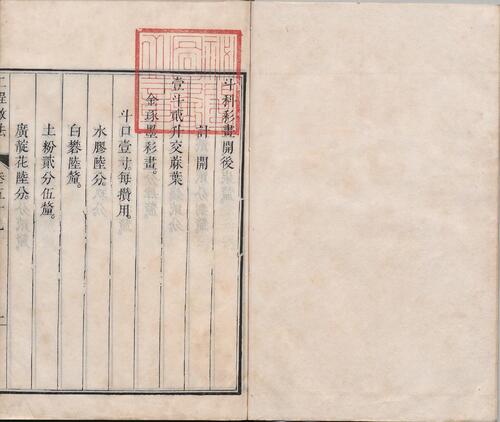 斗科彩畫開後
計開
壹斗貳升交蔴葉
金琢墨彩畫。
斗口壹寸。每攢用。
水膠陸分。
白礬陸釐。
土粉貳分伍釐。
廣靛花陸分。
工程做法
卷五十九